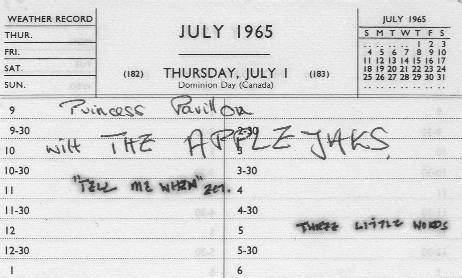 WEATHER RECORD
THUR.
FRI.
SAT.
SUN.
JULY 1965
(182) THURSDAY, JULY 1 (183)
Dominion Day (Canada)
JULY 1965
S M T W T F S
.. .. .. .. 1 2 3
4 5 6 7 8 9 10
11 12 13 14 15 16 17
18 19 20 21 22 23 24
25 26 27 28 29 30 31
9 Princess Pavillon
9-30 2-30
10 with THE APPLEJAKS
10-30 3-30
11 "TELL ME WHEN" ETC. 4
11-30 4-30
12 5 THREE LITTLE WORDS
12-30 5-30
1 6